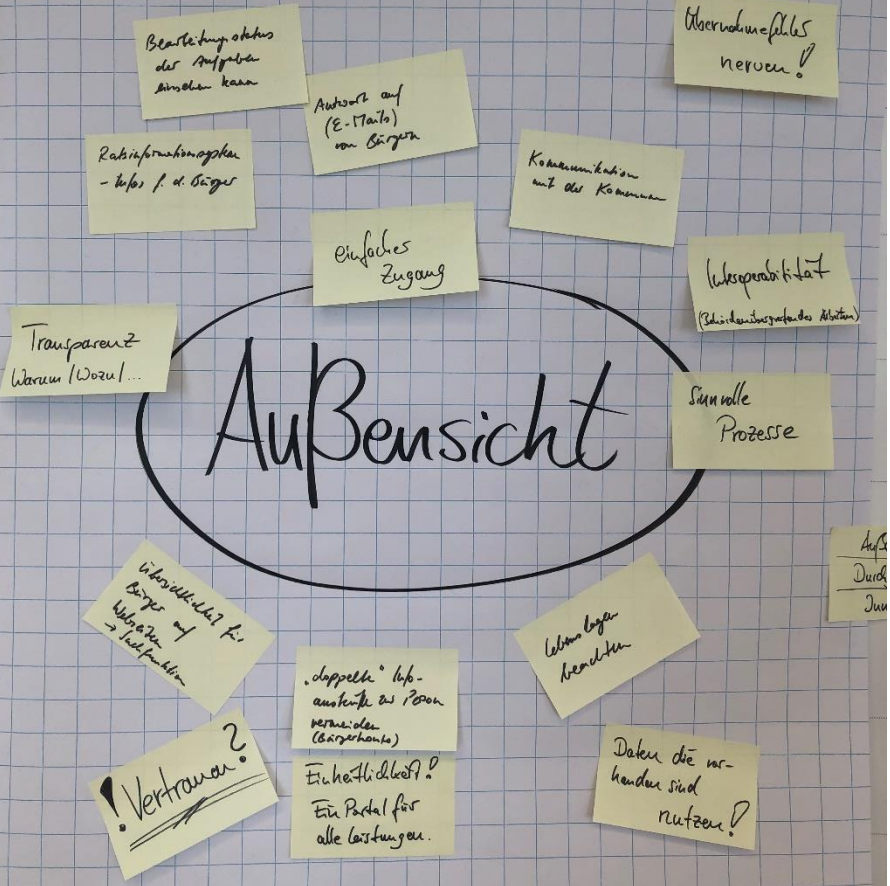 Bearbeitungsstatus
der Aufgaben
einsehen kann
Übernahmefehler
nerven!
Antwort auf
(E-Mails)
von Bürgern
Ratsinformationssystem
- Infos f. d. Bürger
Kommunikation
mit der Kommune
einfaches
Zugang
Interoperabilität
(Behördenübergreifendes Arbeiten)
Transparenz
Warum/Wozu/...
Außensicht
sinnvolle
Prozesse
Übersichtlichkeit für
Bürger auf
Webseiten
→ Suchfunktion
Lebenslagen
beachten
"doppelte" Info-
zur Person
vermeiden
(Bürgerkonto)
! Vertrauen?
Einheitlichkeit!
Ein Portal für
alle Leistungen.
Daten die vor-
handen sind
nutzen!
Auß
Durch